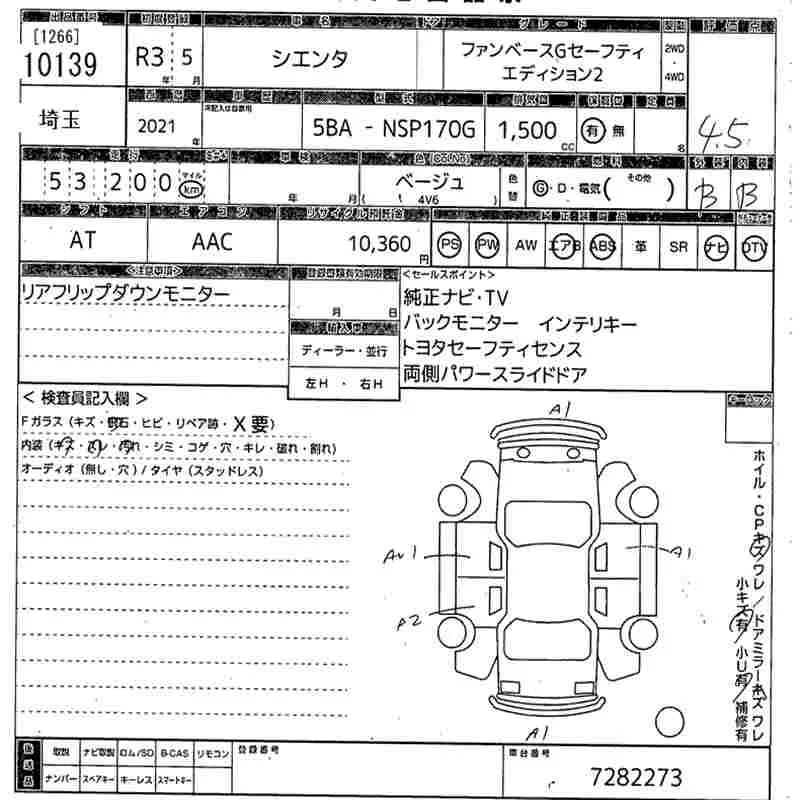 出品番号 初度登録 車名 ドア グレード 評価点
[1266]
10139
R3 年 5 月
シエンタ
ファンベースGセーフティ
エディション2
2WD
・
4WD
埼玉
2021 年
5BA - NSP170G
1,500 CC
有 無
名
4.5
53,200 マイル km
年 月
色(Co.No)
ベージュ
( 4V6 )
色替
燃料
G・D・電気( その他 )
B B
シフト エアコン リサイクル預託金
AT
AAC
10,360 円
PS PW AW エアB ABS 革 SR ナビ DTV
<注意事項>
リアフリップダウンモニター
登録書類有効期限
月 日
ディーラー・並行
左H ・ 右H
<セールスポイント>
純正ナビ・TV
バックモニター インテリキー
トヨタセーフティセンス
両側パワースライドドア
<検査員記入欄>
Fガラス(キズ・飛石・ヒビ・リペア跡・X要)
内装(キズ・スレ・汚れ・シミ・コゲ・穴・キレ・破れ・割れ)
オーディオ(無し・穴)/タイヤ(スタッドレス)
A1
A1
A2
A1
ホイル・CPキズワレ/ドアミラーキズワレ
小キズ有/小U有/補修有
取説 ナビ取説 ロム/SD B-CAS リモコン
ナンバー スペアキー キーレス スマートキー
登録番号
車台番号
7282273